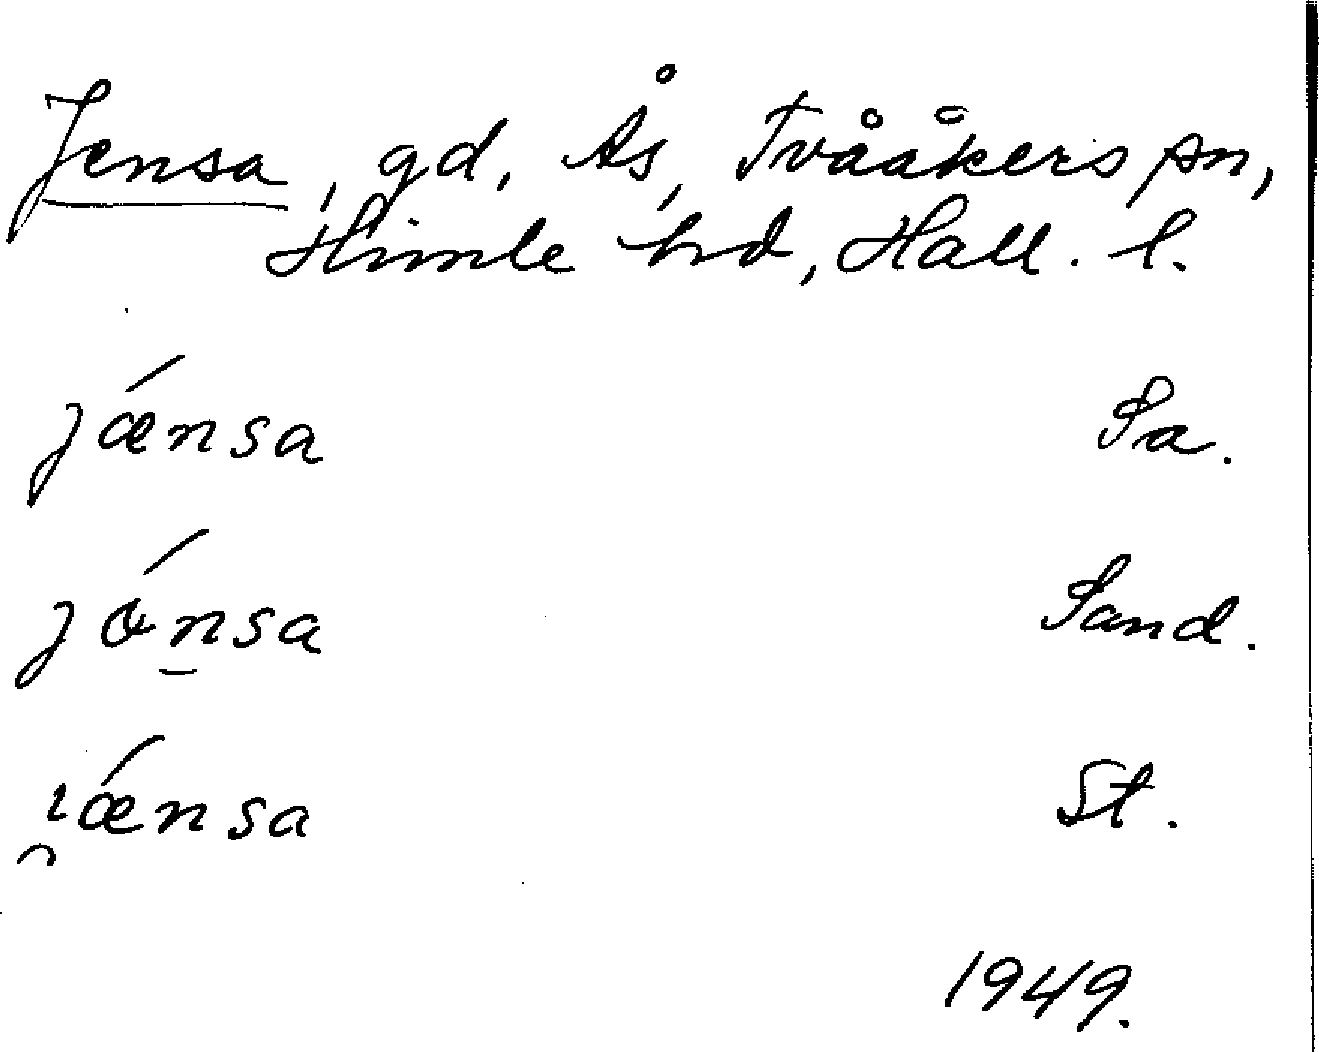 Jensa, gd, Ås, Tvååkers sn,
Himle hd, Hall. l.
jǽnsa Sa.
jónsa Sand.
ı̯ǽnsa St.
1949.